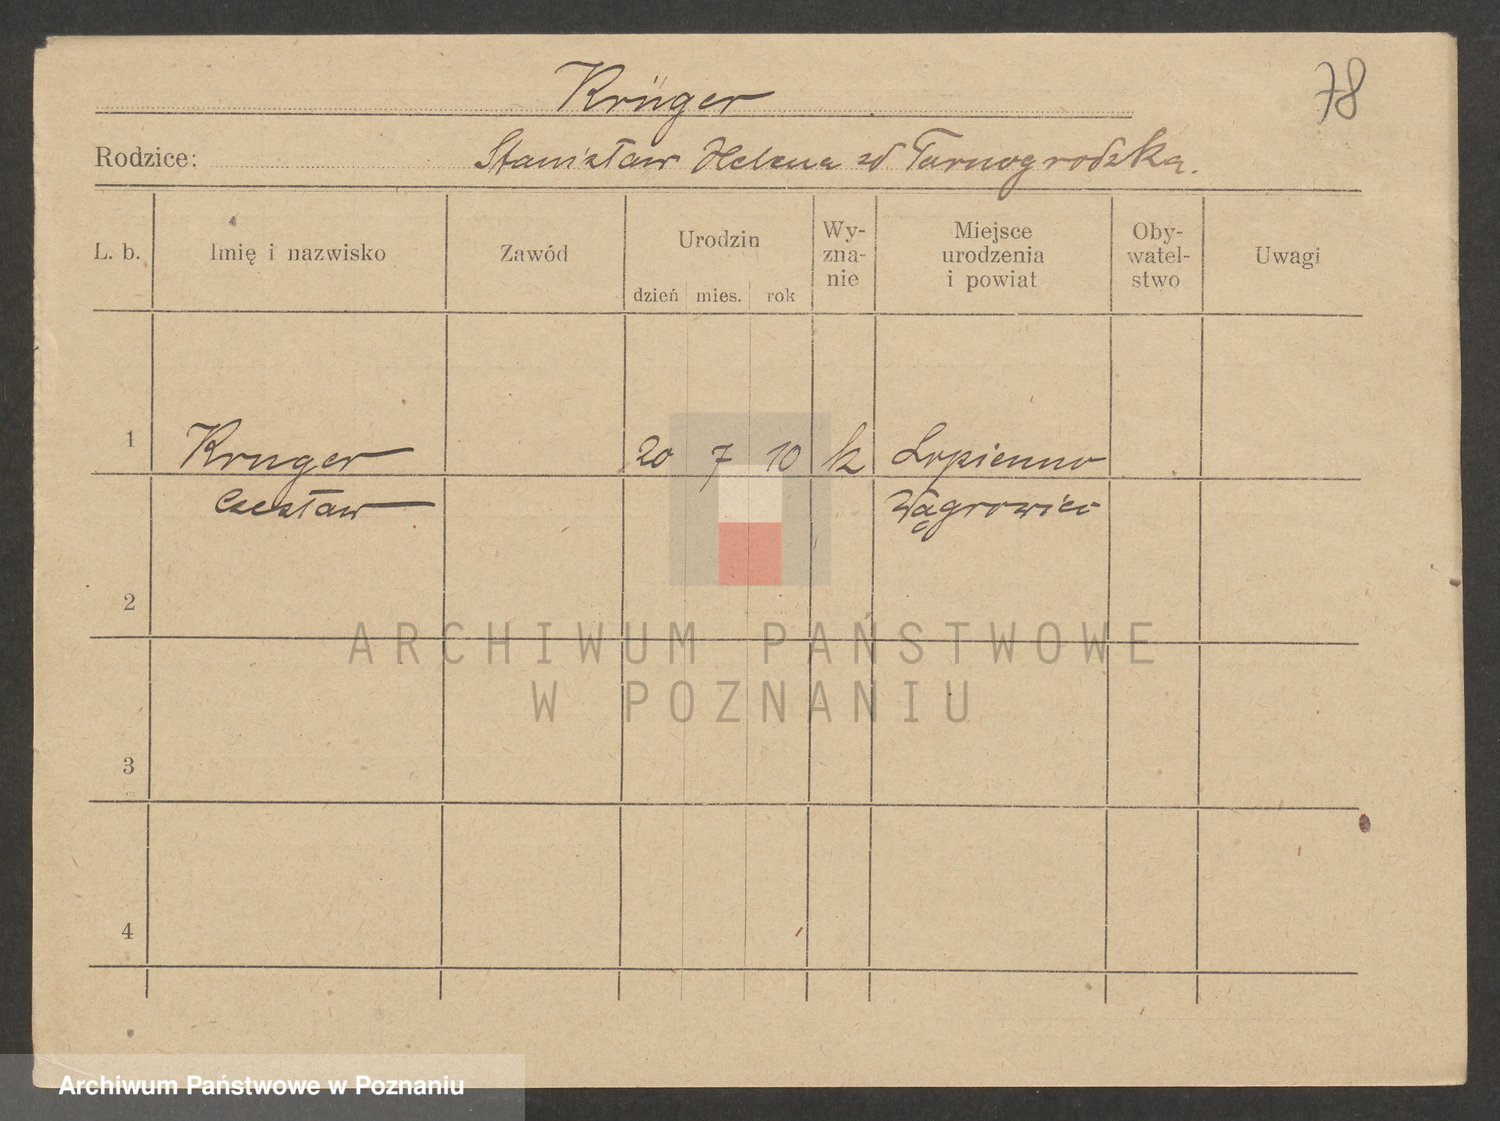 Krüger
78
Rodzice: Stanisław Helena zd Tarnogrodzka.
L. b. Imię i nazwisko Zawód Urodzin dzień mies. rok Wy-zna-nie Miejsce urodzenia i powiat Oby-watel-stwo Uwagi
1 Kruger 20 7 10 k Łopienno
Czesław Wągrowiec
2
ARCHIWUM PAŃSTWOWE
W POZNANIU
3
4
Archiwum Państwowe w Poznaniu